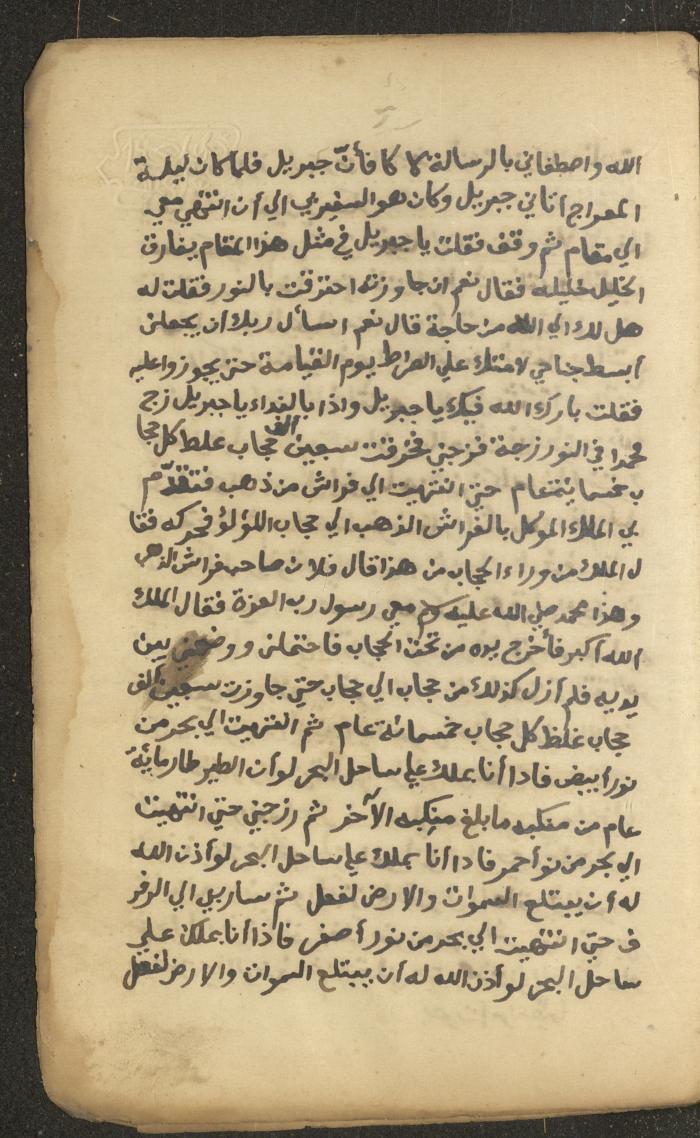 الله واصطفاني بالرسالة كما كافأنّ جبريل فلما كان ليلة
المعراج أتاني جبريل وكان هو السفير بي الي أن انتهي معي
الي مقام ثم وقف فقلت يا جبريل في مثل هذا المقام يفارق
الخليل خليله فقال نعم ان جاوزته احترقت بالنور فقلت له
هل لك الي الله من حاجة قال نعم اسأل ربك أن يجعلن
أبسط جناحي لامتك علي الصراط يوم القيامة حتي يجوزوا عليه
فقلت بارك الله فيك يا جبريل واذا بالنداء يا جبريل زج
محمدا في النور زجة فزجني فخرقت سبعين ألف حجاب غلظ كل حجا
ب خمسمائة عام حتي انتهيت الي فراش من ذهب فتقدّم
بي الملك الموكل بالفراش الذهب الي حجاب اللؤلؤ فحركه فقا
ل الملك من وراء الحجاب من هذا قال فلان صاحب فراش الذهب
وهذا محمد صلي الله عليه وسلم معي رسول رب العزة فقال الملك
الله أكبر فأخرج يده من تحت الحجاب فاحتملن ووضعني بين
يديه فلم أزل كذلك من حجاب الي حجاب حتي جاوزت سبعين ألف
حجاب غلظ كل حجاب خمسمائة عام ثم انتهيت الي بحر من
نور أبيض فاذا أنا بملك علي ساحل البحر لو أن الطير طار مائة
عام من منكبه ما بلغ منكبه الآخر ثم زجني حتي انتهيت
الي بحر من نو أحمر فاذا أنا بملك علي ساحل البحر لو أذن الله
له أن يبتلع السموات والارض لفعل ثم سار بي الي الرفر
ف حتي انتهيت الي بحر من نور أصفر فاذا أنا بملك علي
ساحل البحر لو أذن الله له أن يبتلع السموات والارض لفعل